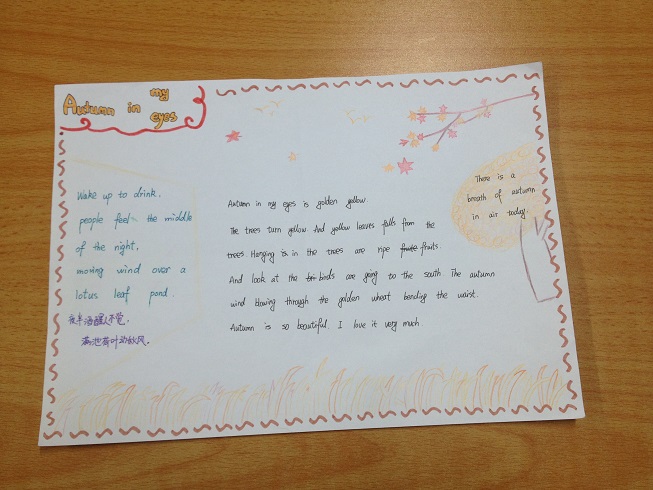 Autumn in my eyes
Wake up to drink,
people feel the middle
of the night,
moving wind over a
lotus leaf pond.
夜半酒醒人不觉,
满池荷叶动秋风。
Autumn in my eyes is golden yellow.
The trees turn yellow And yellow leaves falls from the
trees. Hanging in the trees are ripe fruits.
And look at the birds are going to the south. The autumn
wind blowing through the golden wheat bending the waist.
Autumn is so beautiful. I love it very much
There is a
breath of autumn
in air today.